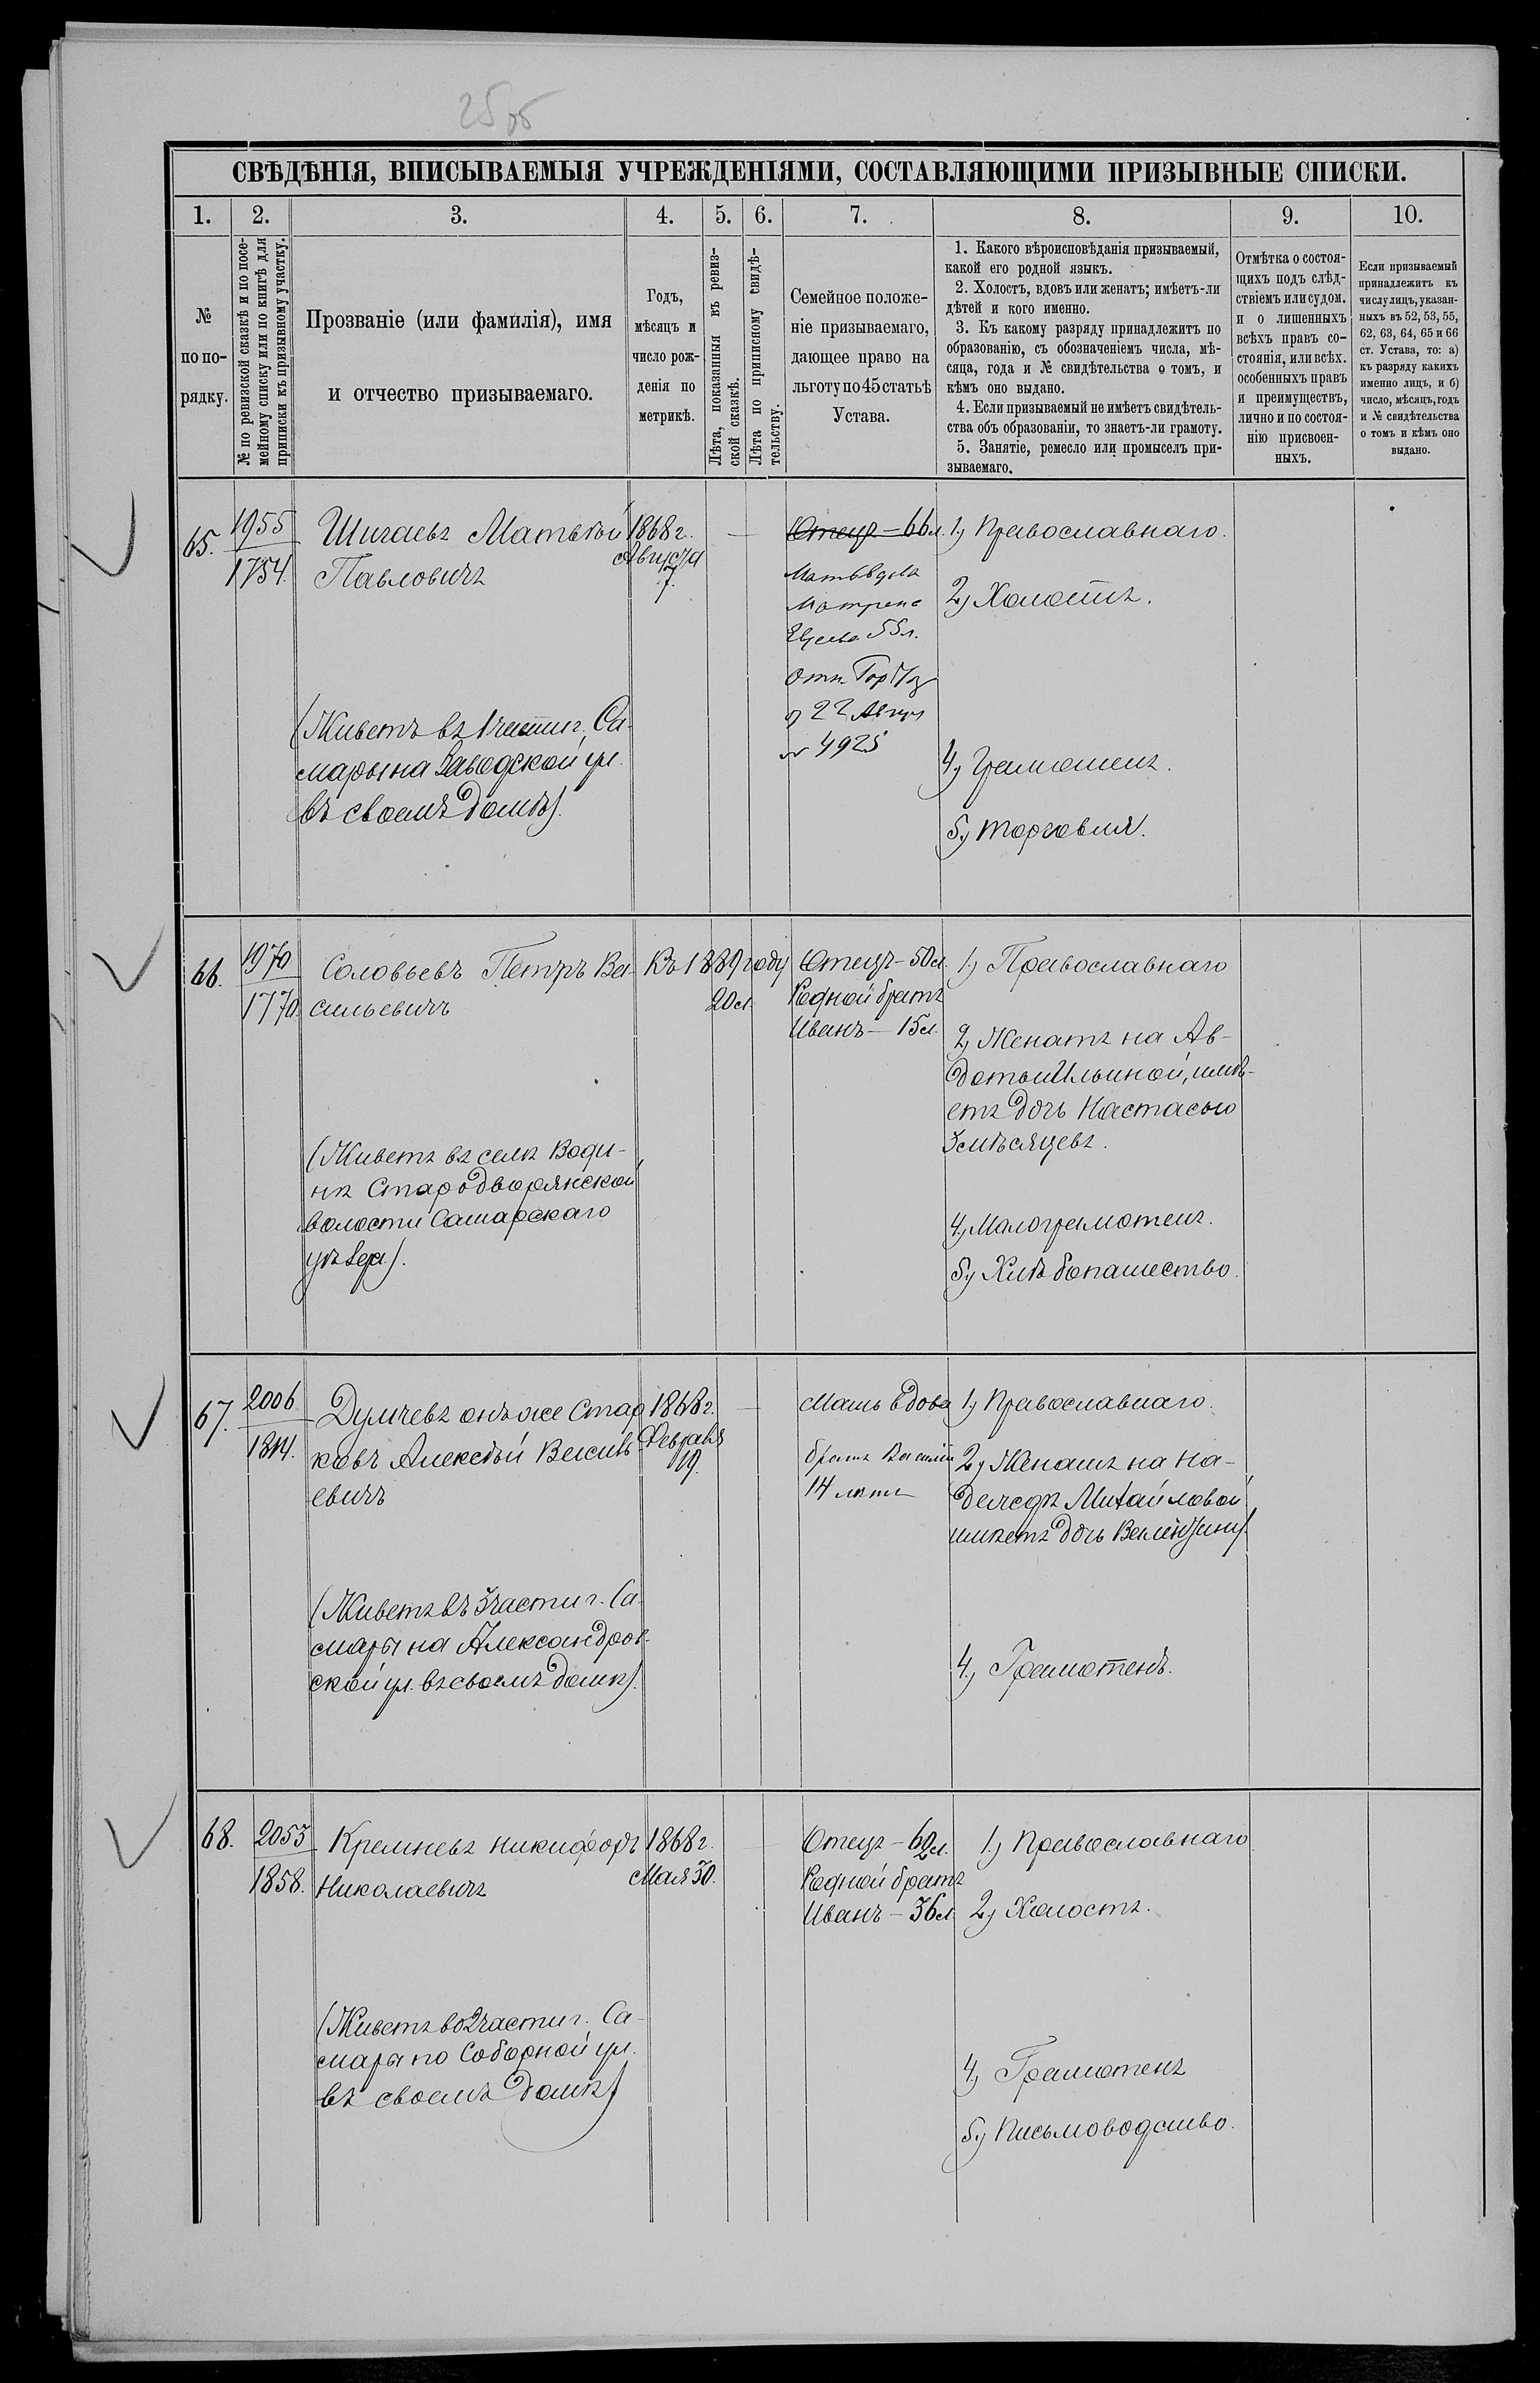 25об
СВѢДѢНІЯ, ВПИСЫВАЕМЫЯ УЧРЕЖДЕНІЯМИ, СОСТАВЛЯЮЩИМИ ПРИЗЫВНЫЕ СПИСКИ.
1. 2. 3. 4. 5. 6. 7. 8. 9. 10.
№
по по-
рядку.
№ по ревизской сказкѣ и по посе-
мейному списку или по книгѣ для
приписки къ призывному участку.
Прозваніе (или фамилія), имя
и отчество призываемаго.
Годъ,
мѣсяцъ и
число рож-
денія по
метрикѣ.
Лѣта, показанныя въ ревиз-
ской сказкѣ.
Лѣта по приписному свидѣ-
тельству.
Семейное положе-
ніе призываемаго,
дающее право на
льготу по 45 статьѣ
Устава.
1. Какого вѣроисповѣданія призываемый,
какой его родной языкъ.
2. Холостъ, вдовъ или женатъ; имѣетъ-ли
дѣтей и кого именно.
3. Къ какому разряду принадлежитъ по
образованію, съ обозначеніемъ числа, мѣ-
сяца, года и № свидѣтельства о томъ, и
кѣмъ оно выдано.
4. Если призываемый не имѣетъ свидѣтель-
ства объ образованіи, то знаетъ-ли грамоту.
5. Занятіе, ремесло или промыселъ при-
зываемаго.
Отмѣтка о состоя-
щихъ подъ слѣд-
ствіемъ или судом.
и о лишенныхъ
всѣхъ правъ со-
стоянія, или всѣх.
особенныхъ правъ
и преимуществъ,
лично и по состоя-
нію присвоен-
ныхъ.
Если призываемый
принадлежитъ къ
числу лицъ, указан-
ныхъ въ 52, 53, 55,
62, 63, 64, 65 и 66
ст. Устава, то: а)
къ разряду какихъ
именно лицъ, и б)
число, мѣсяцъ, годъ
и № свидѣтельства
о томъ и кѣмъ оно
выдано.
65.
1955
1754.
Шигаевъ Матвѣй
Павловичъ
(Живетъ въ 1 части г. Са-
мары на Заводской ул.
въ своемъ домѣ).
1868 г.
Августа
7.
Отецъ – 66 л.
Мать вдова
Матрена
55 л.
22 Авгус
№ 4925
1, Православнаго.
2, Холостъ.
4, Грамотенъ.
5, Торговля.
66.
1970
1770.
Соловьевъ Петръ Ва-
сильевичъ
(Живетъ въ селѣ Води-
нѣ Стародворянской
волости Самарскаго
уѣзда).
Къ 1889 году
20 л.
Отецъ – 50 л.
Родной братъ
Иванъ – 15 л.
1, Православнаго
2, Женатъ на Ав-
дотьи Ильиной, имѣ-
етъ дочь Настасью
3 мѣсяцевъ.
4, Малограмотенъ.
5, Хлѣбопашество.
67.
2006
1814.
Думчевъ онъ же Стар
ковъ Алексѣй Василь-
евичъ
(Живетъ въ 3 части г. Са-
мары на Александров-
ской ул. въ своемъ домѣ).
1868 г.
Февраля
19.
Мать вдова
братъ Василій
14 лѣтъ
1, Православнаго.
2, Женатъ на На-
деждѣ Михайловой
имѣетъ дочь
4, Грамотенъ.
68.
2053
1858.
Кремневъ Никифоръ
Николаевичъ
(Живетъ во 2 части г. Са-
мары по Соборной ул.
въ своемъ домѣ)
1868 г.
Мая 30.
Отецъ – 62 л.
Родной братъ
Иванъ – 36 л.
1, Православнаго
2, Холостъ.
4, Грамотенъ
5, Письмоводство.